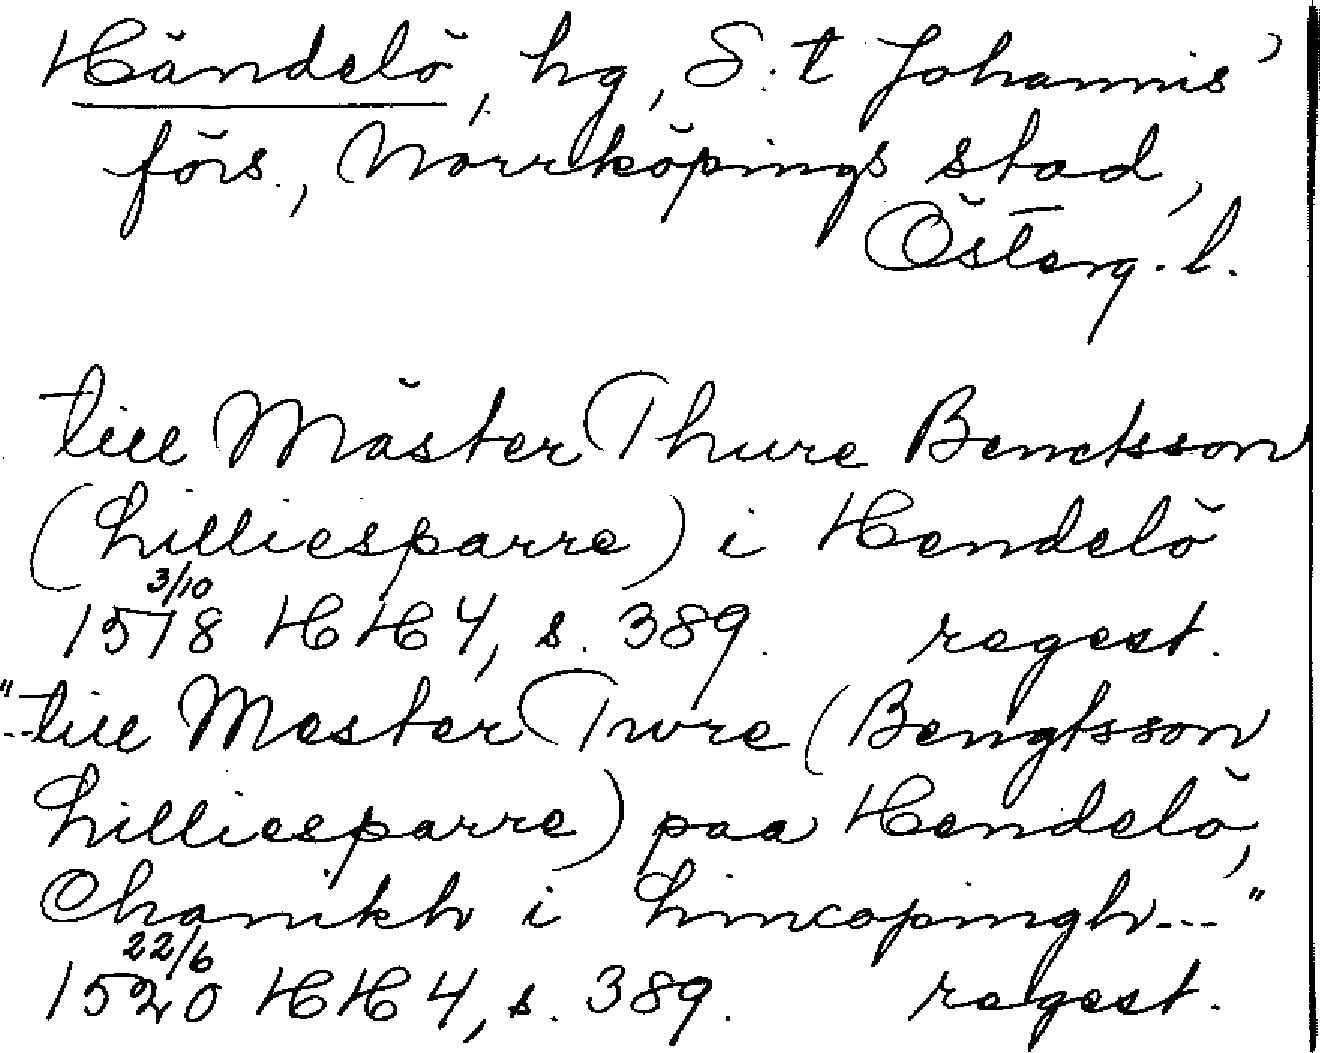 Händelö, hg, S:t Johannis'
förs., Norrköpings stad,
Österg. l.
till Mäster Thure Benctsson
(Lilliesparre) i Hendelö
3/10
1518 HH 4, s. 389. regest.
"--till Mester Twre (Bengtsson
Lilliesparre) paa Hendelö,
Chanikh i Lincopingh---"
22/6
1520 HH 4, s. 389. regest.